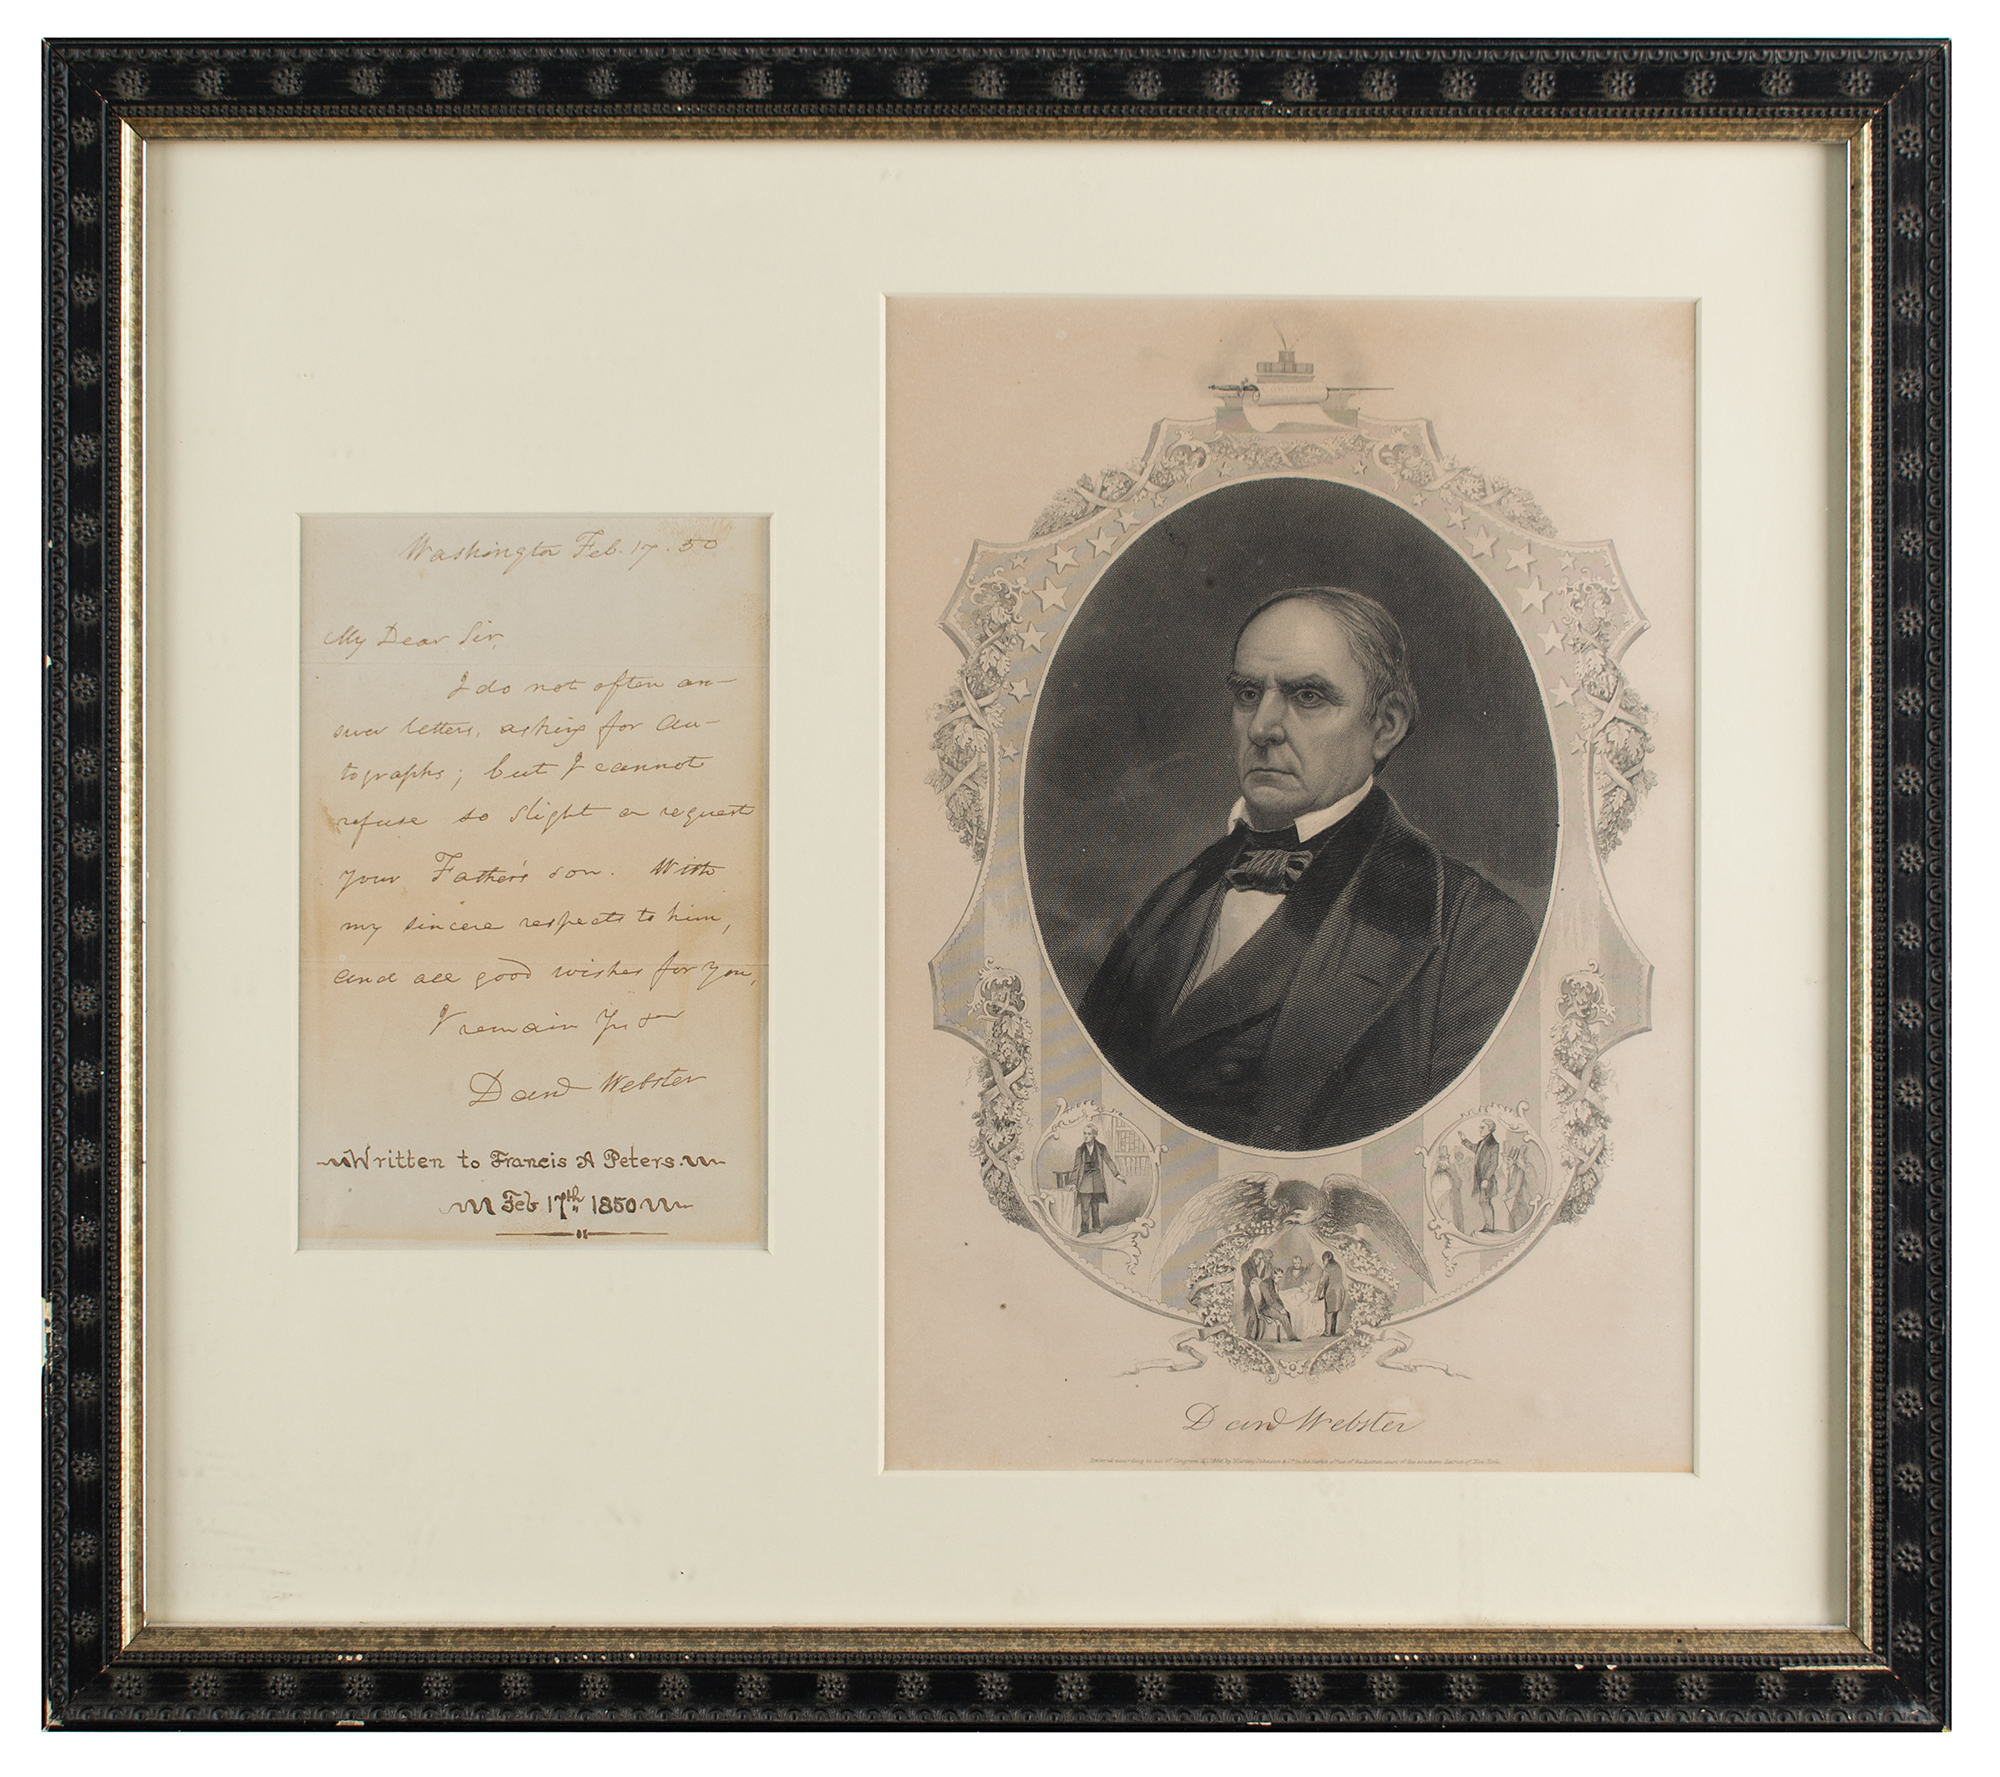 Washington Feb. 17. 50
My Dear Sir,
I do not often an-
swer letters, asking for au-
tographs; but I cannot
refuse so slight a request
your Father's son. With
my sincere respects to him,
and all good wishes for you,
I remain Yrs
Danl Webster
Written to Francis A Peters.
Feb 17th 1850
Danl Webster
Entered according to act of Congress by Johnson in the clerk's office of the district court of the southern district of New York.